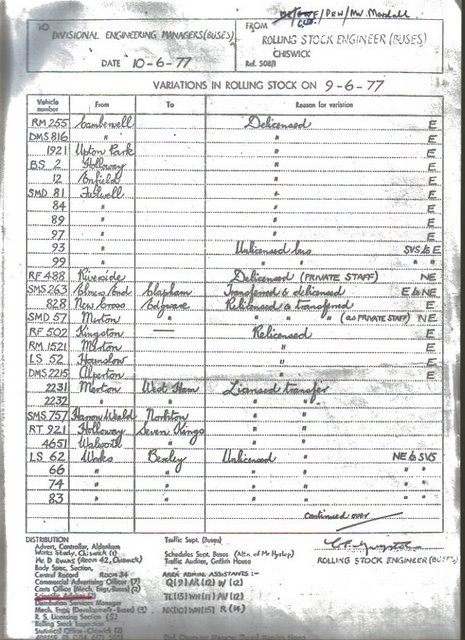 TO
DIVISIONAL ENGINEERING MANAGERS (BUSES)
DATE 10-6-77
/ PEW / Mr. Marshall
FROM
ROLLING STOCK ENGINEER (BUSES)
CHISWICK
Ref. 508/1
VARIATIONS IN ROLLING STOCK ON 9-6-77
Vehicle number From To Reason for variation
RM 255 Camberwell Delicensed E
DMS 816 " " E
1921 Upton Park " E
BS 2 Holloway " E
12 Enfield " E
SMD 81 Fulwell " E
84 " " E
89 " " E
97 " " E
93 " Unlicensed bus SVS to E
99 " " " " "
RF 488 Riverside Delicensed (PRIVATE STAFF) NE
SMS 263 Elmers End Clapham Transferred & delicensed E to NE
828 New Cross Edgware Relicensed & transferred E
SMD 57 Merton " " " " (as PRIVATE STAFF) NE
RF 502 Kingston — Relicensed E
RM 1521 Merton " E
LS 52 Hounslow " E
DMS 2215 Alperton " E
2231 Merton West Ham Licensed transfer
2232 " " " "
SMS 757 Harrow Weald Norbiton " "
RT 921 Holloway Seven Kings " "
4651 Walworth " " "
LS 62 Works Bexley Unlicensed " NE to SVS
66 " " " " " "
74 " " " " " "
83 " " " " " "
continued over
ROLLING STOCK ENGINEER (BUSES)
DISTRIBUTION
Advert. Controller, Aldenham
Works Study, Chiswick (1)
Mr. D Evans (Room 42, Chiswick)
Body Spec. Section,
Central Record Room 34
Commercial Advertising Officer (7)
Costs Officer (Mech. Engr. Buses) (2)
Distribution Services Manager
Mech. Engr (Development - Buses) (3)
R. S. Licensing Section (5)
Rolling Stock Inspection
Statistical Office - Chiswick (2)
Traffic Supt. (Buses)
Schedules Supt. Buses (Attn. of Mr Hyslop)
Traffic Auditor, Griffith House
AREA ADMIN. ASSISTANTS :-